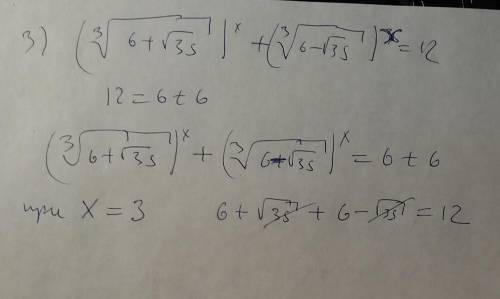 3) (∛(6+√35))^x + (∛(6-√35))^x = 12
12 = 6 + 6
(∛(6+√35))^x + (∛(6-√35))^x = 6 + 6
при X = 3 6 + √35 + 6 - √35 = 12